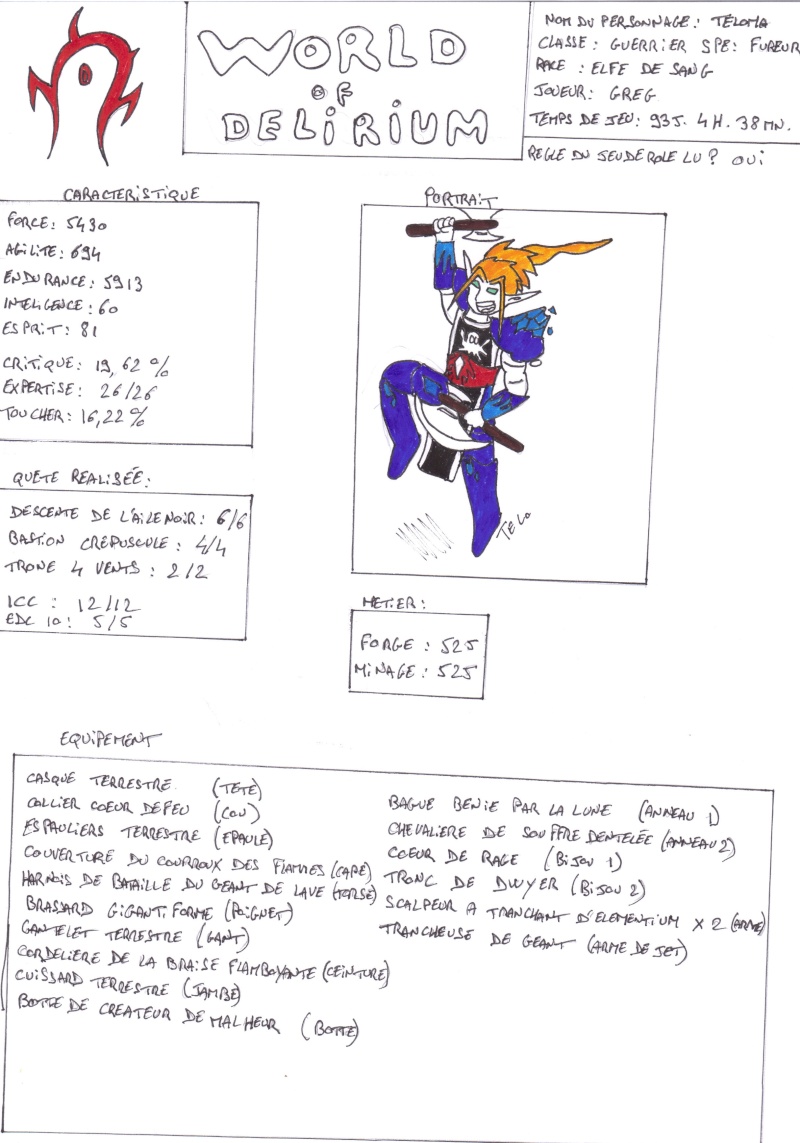 WORLD
OF
DELIRIUM
NOM DU PERSONNAGE : TELOMA
CLASSE : GUERRIER SPE : FUREUR
RACE : ELFE DE SANG
JOUEUR : GREG
TEMPS DE JEU : 93J. 4H. 38MN.
REGLE DU JEU DE ROLE LU ? OUI
CARACTERISTIQUE
FORCE : 5430
AGILITE : 694
ENDURANCE : 5913
INTELIGENCE : 60
ESPRIT : 81
CRITIQUE : 19,62 %
EXPERTISE : 26/26
TOUCHER : 16,22 %
PORTRAIT
TELO
QUETE REALISÉE :
DESCENTE DE L'AILE NOIR : 6/6
BASTION CREPUSCULE : 4/4
TRONE 4 VENTS : 2/2
ICC : 12/12
EDC 10 : 5/5
METIER :
FORGE : 525
MINAGE : 525
EQUIPEMENT
CASQUE TERRESTRE (TETE)
COLLIER COEUR DE FEU (COU)
ESPAULIERS TERRESTRE (EPAULE)
COUVERTURE DU COURROUX DES FLAMMES (CAPE)
HARNOIS DE BATAILLE DU GEANT DE LAVE (TORSE)
BRASSARD GIGANTIFORME (POIGNET)
GANTELET TERRESTRE (GANT)
CORDELIERE DE LA BRAISE FLAMBOYANTE (CEINTURE)
CUISSARD TERRESTRE (JAMBE)
BOTTE DE CREATEUR DE MALHEUR (BOTTE)
BAGUE BENIE PAR LA LUNE (ANNEAU 1)
CHEVALIERE DE SOUFFRE DENTELÉE (ANNEAU 2)
COEUR DE RAGE (BIJOU 1)
TRONC DE DWYER (BIJOU 2)
SCALPEUR A TRANCHANT D'ELEMENTIUM X 2 (ARME)
TRANCHEUSE DE GEANT (ARME DE JET)